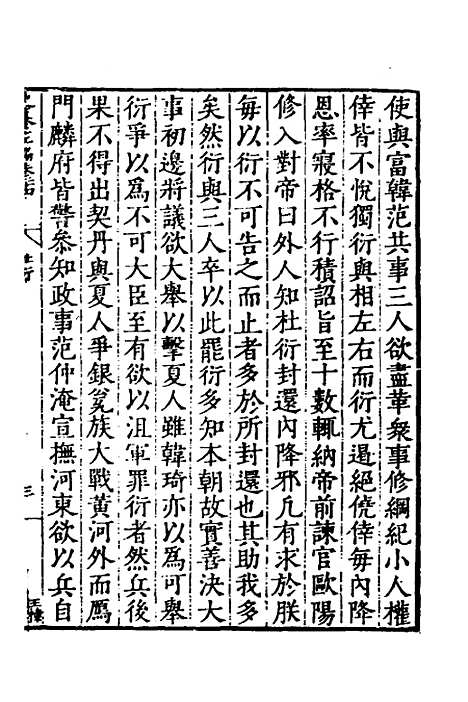 使與富韓范共事三人欲盡革衆事修綱紀小人權
倖皆不悅獨衍與相左右而衍尤遏絕僥倖每內降
恩率寢格不行積詔旨至十數輒納帝前諫官歐陽
修入對帝曰外人知杜衍封還內降邪凡有求於朕
每以衍不可告之而止者多於所封還也其助我多
矣然衍與三人卒以此罷衍多知本朝故實善決大
事初邊將議欲大舉以擊夏人雖韓琦亦以爲可舉
衍爭以爲不可大臣至有欲以沮軍罪衍者然兵後
果不得出契丹與夏人爭銀瓮族大戰黃河外而鴈
門麟府皆警叅知政事范仲淹宣撫河東欲以兵自
杜衍
三